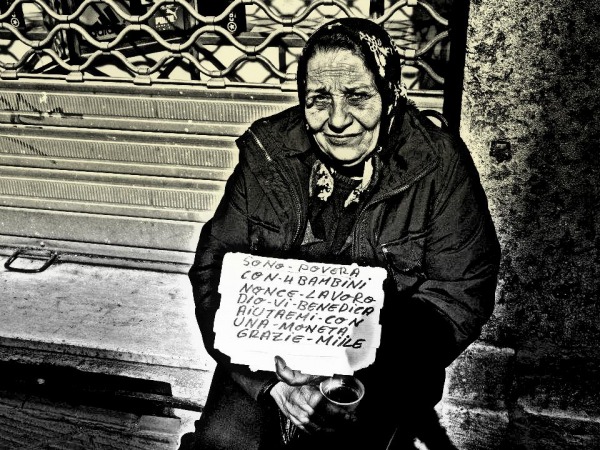 SONO-POVERA
CON-4BAMBINI
NONCE-LAVORO
DIO-VI-BENEDICA
AIUTAEMI-CON
UNA-MONETA
GRAZIE-MIILE